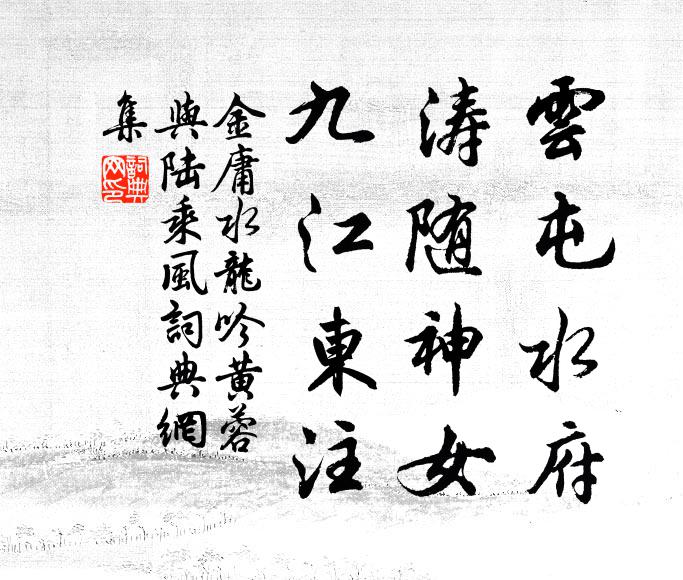 雲屯水府
涛随神女
九江東注
金庸水龍吟黄蓉
與陆乘風詞典網
集
詞典
网印